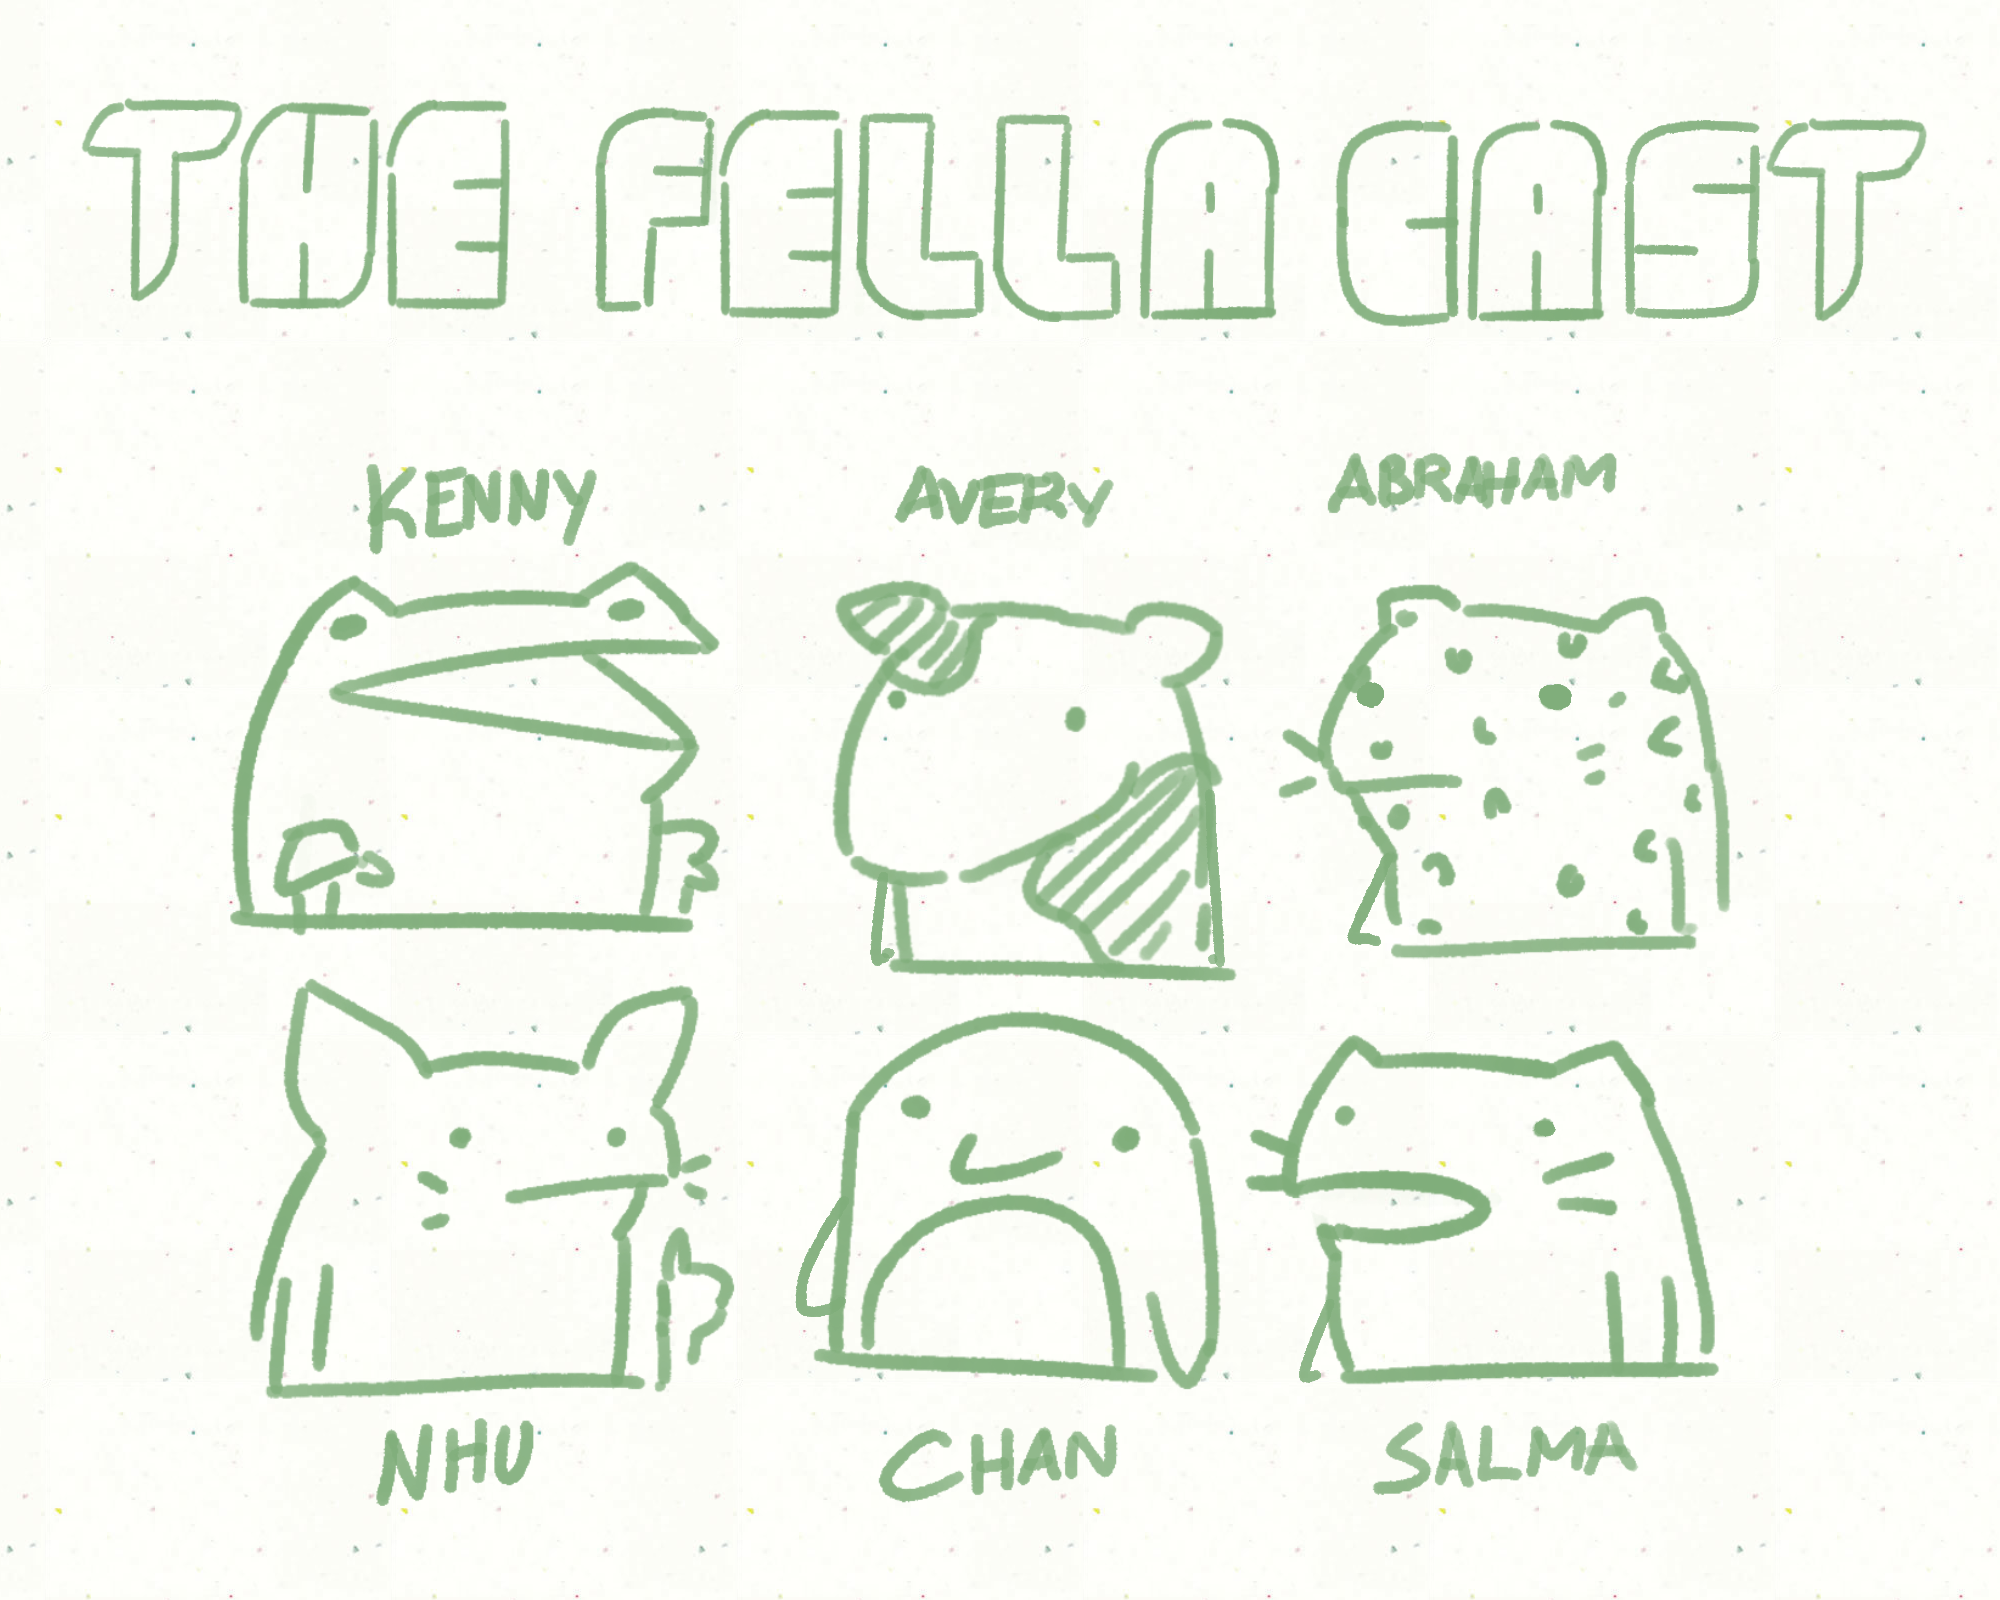 THE FELLA CAST
KENNY AVERY ABRAHAM
NHU CHAN SALMA